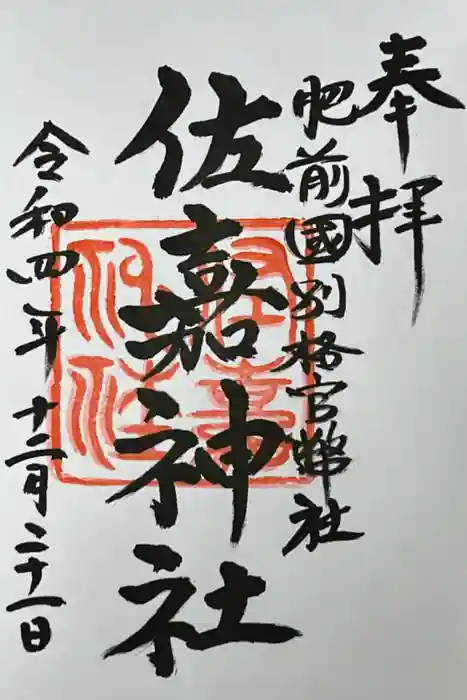 奉拝
肥前國別格官幣社
佐嘉神社
令和四年 十二月二十一日
佐嘉
神社